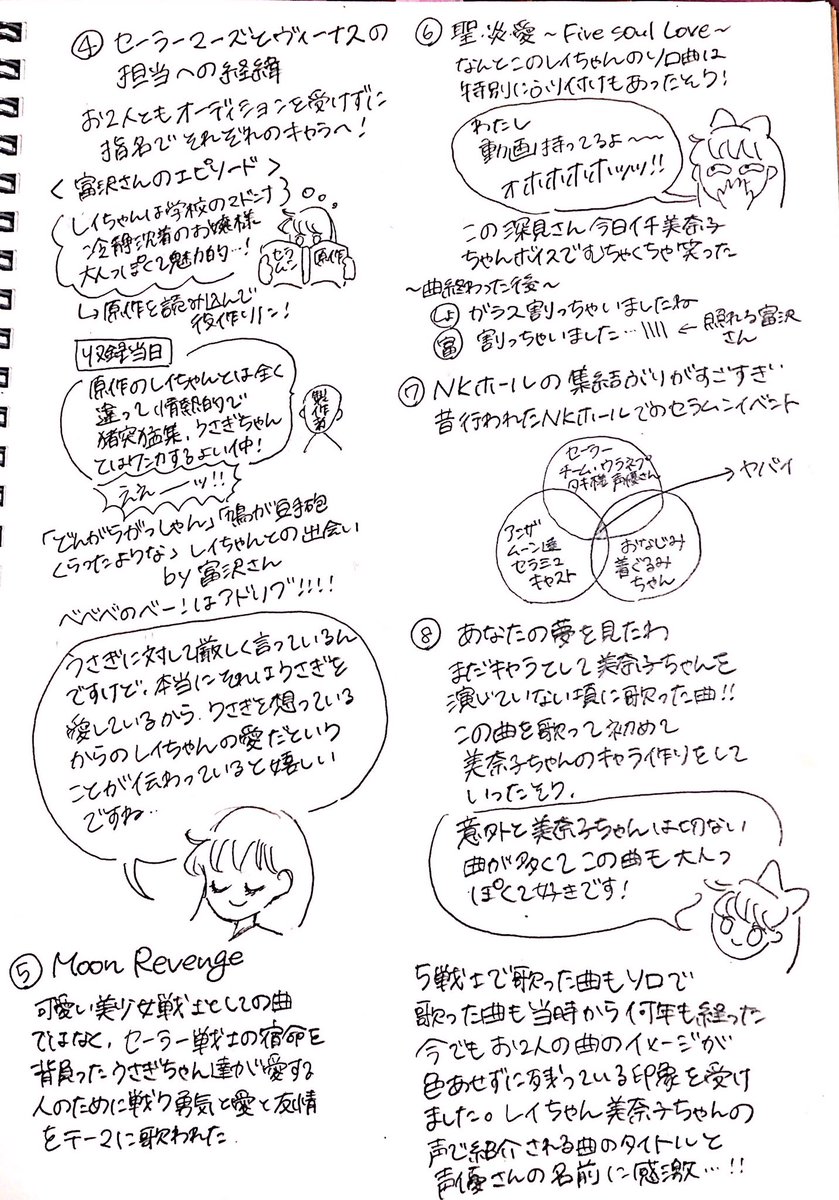 ④ セーラーマーズとヴィーナスの
担当への経緯
お2人ともオーディションを受けずに
指名でそれぞれのキャラへ!
<富沢さんのエピソード>
レイちゃんは学校のマドンナ
冷静沈着のお嬢様
大人っぽくて魅力的…!
セラ
ムン
原作
↳原作を読み込んで
役作りバン!
収録当日
原作のレイちゃんとは全く
違って情熱的で
猪突猛進、うさぎちゃん
とはケンカするよい仲!
製作者
ええーッ!!
「どんがらがっしゃん」「鳩が豆手砲
くらったような」レイちゃんとの出会い
by 富沢さん
べべべのべー!はアドリブ!!!!
うさぎに対して厳しく言っているん
ですけど、本当にそれはうさぎを
愛しているから、うさぎを想っている
からのレイちゃんの愛だという
ことが伝わっていると嬉しい
ですね…
⑤ Moon Revenge
可愛い美少女戦士としての曲
ではなく、セーラー戦士の宿命を
背負ったうさぎちゃん達が愛する
人のために戦う勇気と愛と友情
をテーマに歌われた
⑥ 聖・炎・愛~Five soul Love~
なんとこのレイちゃんのソロ曲は
特別にふり付けもあったそう!
わたし
動画持ってるよ~~
オホホホホホッッ!!
この深見さん今日イチ美奈子
ちゃんボイスでむちゃくちゃ笑った
~曲終わった後~
しょ ガラス割っちゃいましたね
富 割っちゃいました… ← 照れる富沢
さん
⑦ NKホールの集結ぶりがすごすぎ
昔行われたNKホールでのセラムンイベント
セーラー
チーム・ウラネプ
タキ様 声優さん
ヤバイ
アンザ
ムーン達
セラミュ
キャスト
おなじみ
着ぐるみ
ちゃん
⑧ あなたの夢を見たわ
まだキャラとして美奈子ちゃんを
演じていない頃に歌った曲!!
この曲を歌って初めて
美奈子ちゃんのキャラ作りをして
いったそう。
意外と美奈子ちゃんは切ない
曲が多くてこの曲も大人っ
ぽくて好きです!
5戦士で歌った曲もソロで
歌った曲も当時から何年も経った
今でもお2人の曲のイメージが
色あせずに残っている印象を受け
ました。レイちゃん美奈子ちゃんの
声で紹介される曲のタイトルと
声優さんの名前に感激…!!